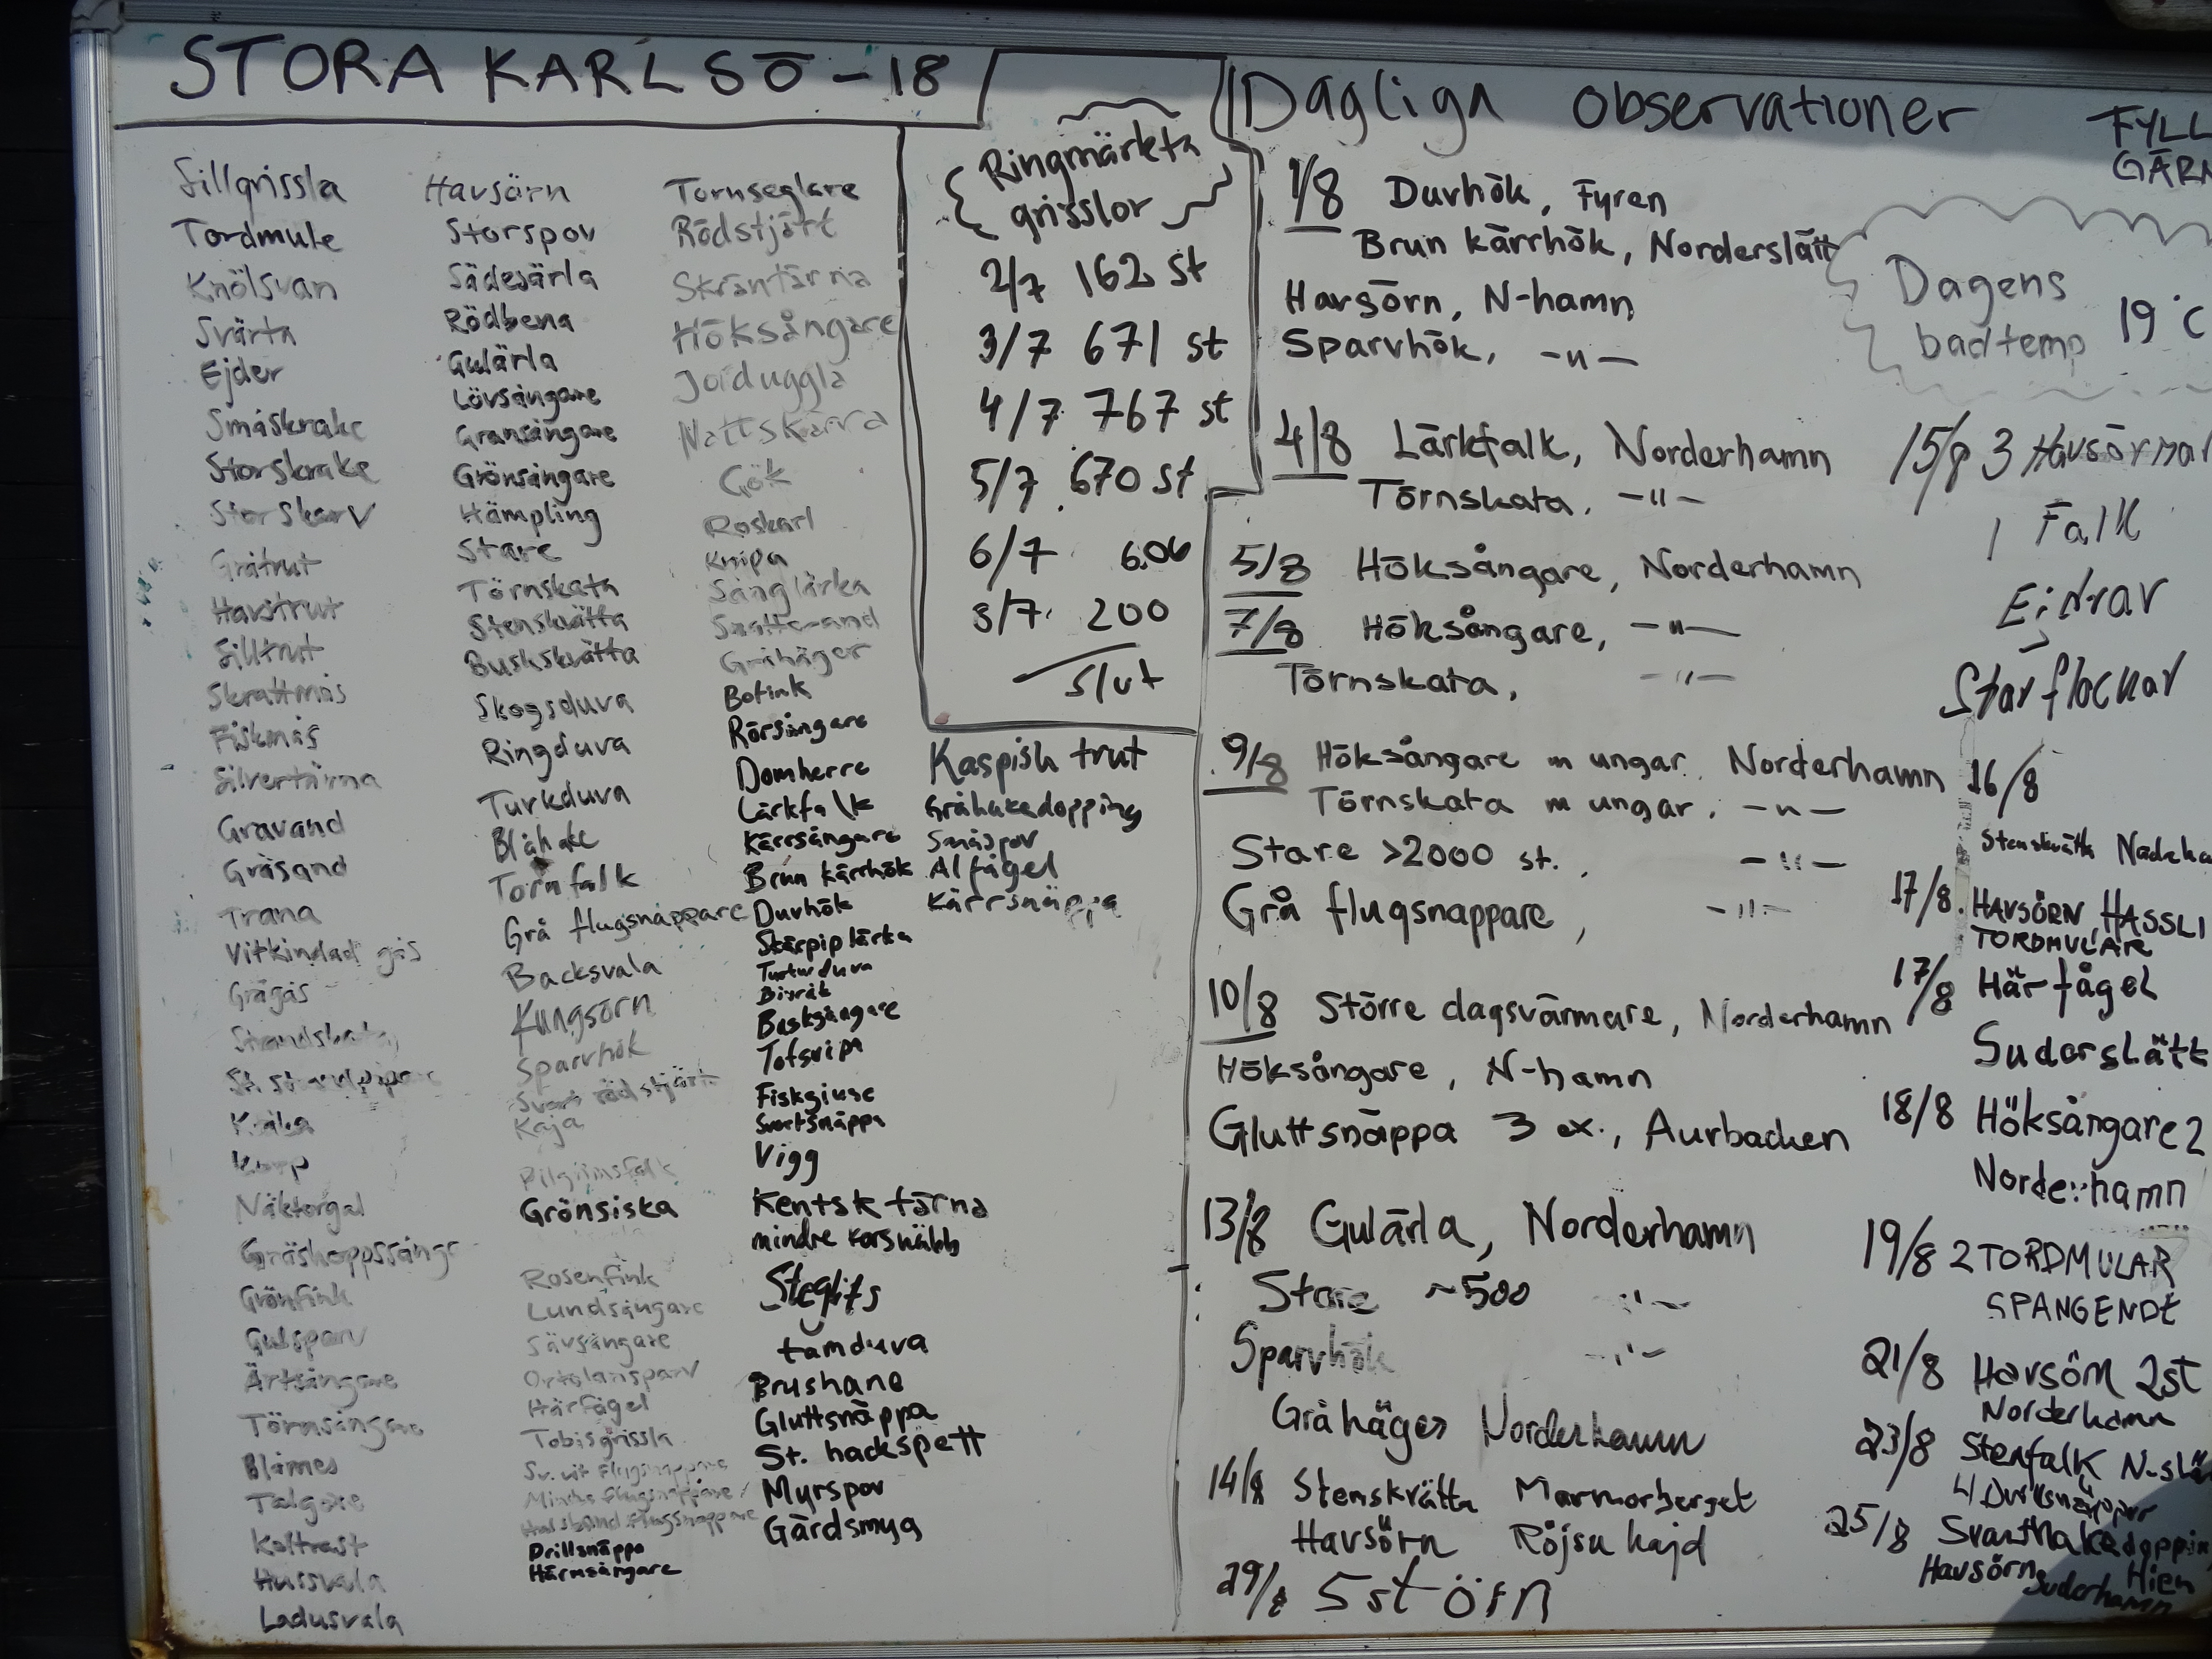 STORA KARLSÖ - 18
Sillgrissla
Tordmule
Knölsvan
Svärta
Ejder
Småskrake
Storskrake
Storskarv
Gråtrut
Havstrut
Silltrut
Skrattmås
Fiskmås
Silvertärna
Gravand
Gräsand
Trana
Vitkindad gås
Grågås
Strandskata
Kråka
Korp
Näktergal
Gräshoppssångr
Grönfink
Gulsparv
Ärtsångare
Törnsångare
Blåmes
Talgoxe
Koltrast
Hussvala
Ladusvala
Havsörn
Storspov
Sädesärla
Rödbena
Gulärla
Lövsångare
Gransångare
Grönsångare
Hämpling
Stare
Törnskata
Stenskvätta
Buskskvätta
Skogsduva
Ringduva
Turkduva
Blåhake
Tornfalk
Grå flugsnappare
Backsvala
Kungsörn
Sparvhök
Svart rödstjärt
Kaja
Pilgrimsfalk
Grönsiska
Rosenfink
Lundsångare
Sävsångare
Ortolansparv
Härfågel
Tobisgrissla
Sv. vit flugsnappare
Mindre flugsnappare
Halsband.flugsnappare
Drillsnäppa
Härmsångare
Tornseglare
Rödstjärt
Skräntärna
Höksångare
Jorduggla
Nattskärra
Gök
Roskarl
Knipa
Sånglärka
Snatterand
Gråhäger
Bofink
Rörsångare
Domherre
Lärkfalk
Kärrsångare
Brun kärrhök
Duvhök
Skärpiplärka
Turturduva
Bivråk
Busksångare
Tofsvipa
Fiskgjuse
Svartsnäppa
Vigg
Kentsk tärna
mindre korsnäbb
Steglits
tamduva
Brushane
Gluttsnäppa
St. hackspett
Myrspov
Gärdsmyg
Ringmärkta
grisslor
2/7 162 st
3/7 671 st
4/7 767 st
5/7 670 st
6/7 606
8/7 200
Slut
Kaspisk trut
Gråhakedopping
Småspov
Alfågel
Kärrsnäppa
Dagliga observationer
1/8 Duvhök, Fyren
Brun kärrhök, Norderslätt
Havsörn, N-hamn
Sparvhök, -"-
4/8 Lärkfalk, Norderhamn
Törnskata, -"-
5/8 Höksångare, Norderhamn
7/8 Höksångare, -"-
Törnskata, -"-
9/8 Höksångare m ungar, Norderhamn
Törnskata m ungar, -"-
Stare >2000 st., -"-
Grå flugsnappare, -"-
10/8 Större dagsvärmare, Norderhamn
Höksångare, N-hamn
Gluttsnäppa 3 ex., Aurbacken
13/8 Gulärla, Norderhamn
Stare ~500 -"-
Sparvhök -"-
Gråhäger Norderhamn
14/8 Stenskvätta Marmorberget
Havsörn Röjsu hajd
29/8 5 st örn
FYLL
GÄRN
Dagens
badtemp 19°C
15/8 3 Havsörnar
1 Falk
Ejdrar
Starflockar
16/8
Stenskvätta
17/8 HAVSÖRN, HASSLI
TORDMULAR
17/8 Härfågel
Suderslätt
18/8 Höksångare 2
Norderhamn
19/8 2 TORDMULAR
SPANGENDE
21/8 Havsörn 2st
Norderhamn
23/8 Stenfalk N-slä
25/8 Svarthakedoppin
Havsörn Hien
Suderhamn